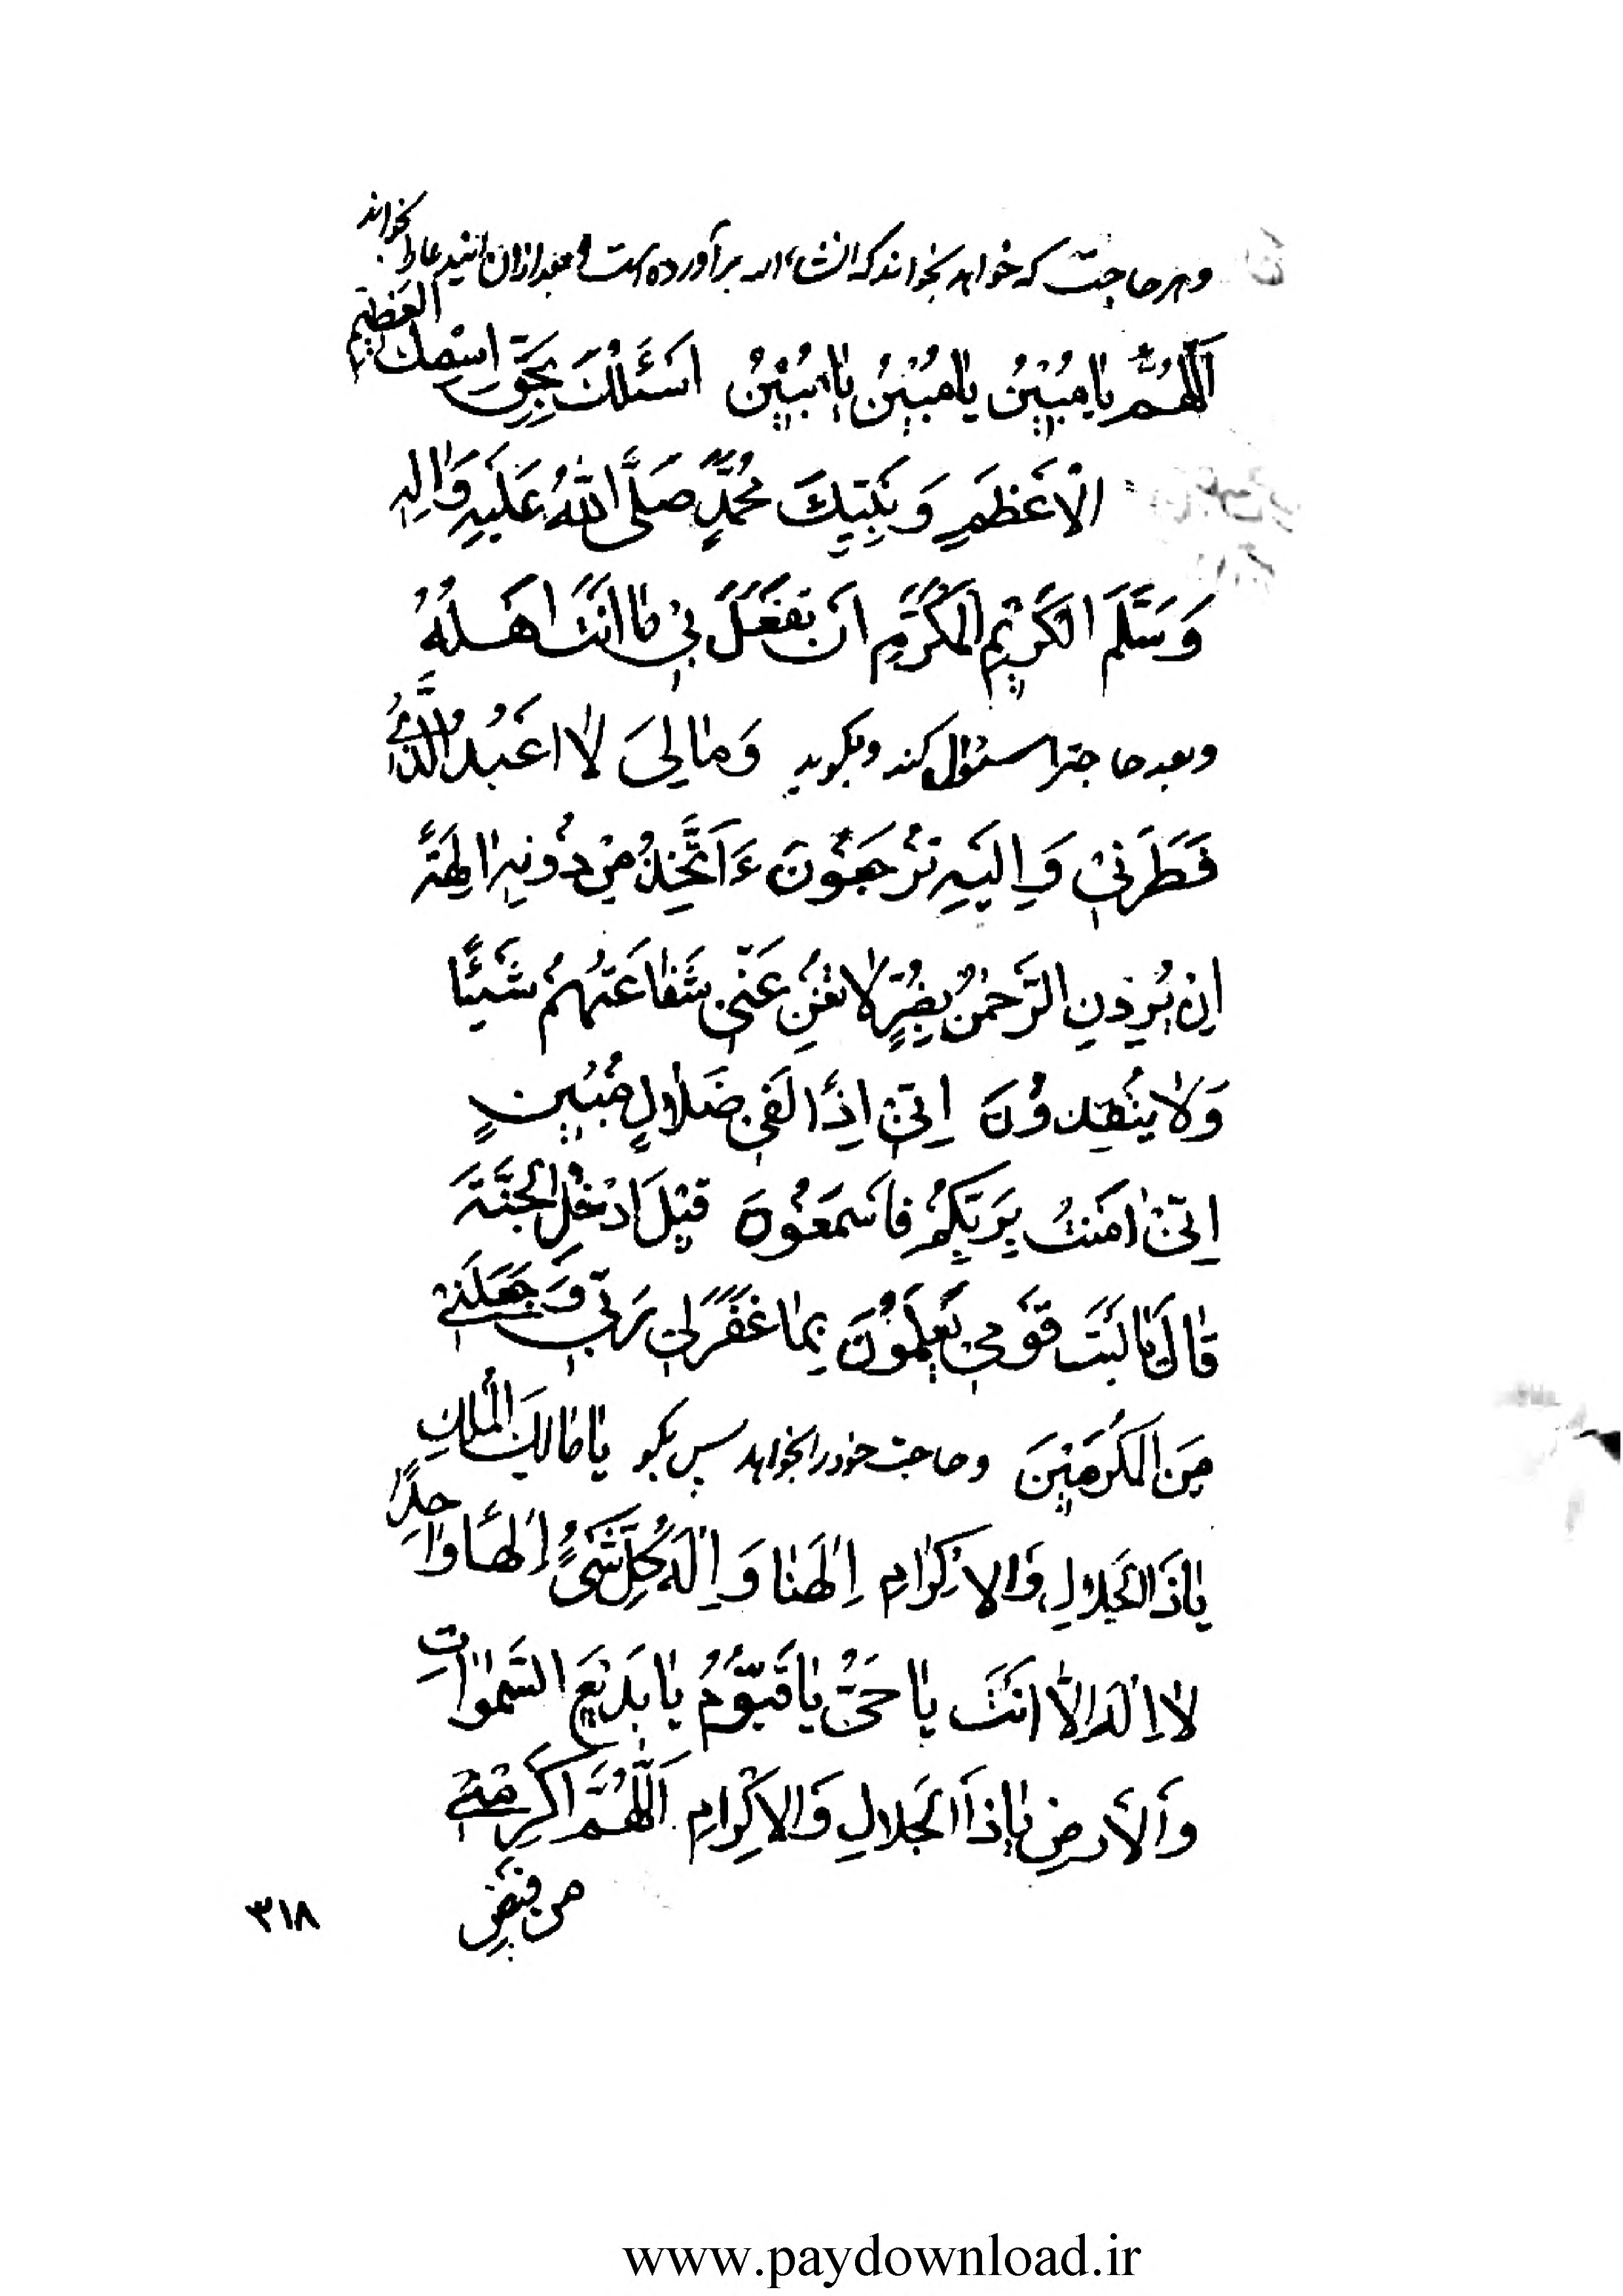 و هر حاجت که خواهد بخواند که انشاءالله برآورده است و بعد از آن این دعا را بخواند
اَللّهُمَّ یا مُبینُ یا مُبینُ یا مُبینُ اَسْئَلُکَ بِحَقِّ اِسْمِکَ العَظیمِ
الْاَعْظَمِ وَ نَبِیِّکَ مُحَمَّدٍ صَلَّی اللّهُ عَلَیْهِ وَ الِهِ
وَ سَلَّمَ الکَریمِ المُکَرَّمِ اَنْ تَفْعَلَ بی ما اَنْتَ اَهْلُهُ
و بعد حاجترا سئوال کند و بگوید وَ مالِیَ لا اَعْبُدُ الَّذی
فَطَرَنی وَ اِلَیْهِ تُرْجَعُونَ ءَاَتَّخِذُ مِنْ دُونِهِ الِهَةً
اِنْ یُرِدْنِ الرَّحْمٰنُ بِضُرٍّ لا تُغْنِ عَنّی شَفاعَتُهُمْ شَیْئًا
وَلا یُنْقِذُونَ اِنّی اِذًا لَفی ضَلالٍ مُبینٍ
اِنّی امَنْتُ بِرَبِّکُمْ فَاسْمَعُونَ قیلَ ادْخُلِ الجَنَّةَ
قالَ یا لَیْتَ قَوْمی یَعْلَمُونَ بِما غَفَرَلی رَبّی وَ جَعَلَنی
مِنَ المُکْرَمینَ و حاجت خود را بخواهد سپس بگو یا مالِکَ المُلْکِ
یا ذَالجَلالِ وَالاِکْرامِ اِلهَنا وَ اِلهَ کُلِّ شَیْءٍ اِلهًا واحِدًا
لا اِلهَ اِلّا اَنْتَ یا حَیُّ یا قَیُّومُ یا بَدیعَ السَّمواتِ
وَالاَرْضِ یا ذَا الجَلالِ وَالاِکْرامِ اَللّهُمَّ اَکْرِمْنی
من فیض
۳۱۸
www.paydownload.ir